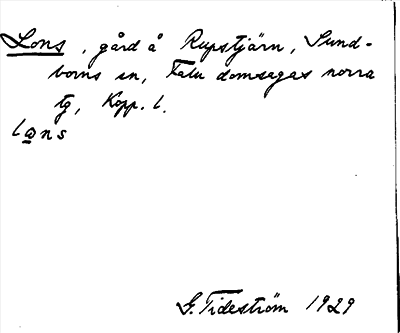 Lons, gård å Rupstjärn, Sund-
borns sn, Falu domsagas norra
tg, Kopp. l.
lans
G. Tideström 1929